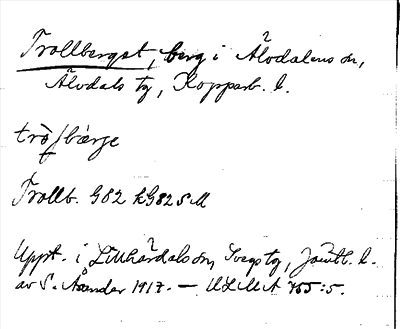 Trollberget, berg i Älvdalens sn,
Älvdals tg, Kopparb. l.
Trollb. GS2 kG82SM
Uppt. i Lillhärdals sn, Svegs tg, Jämtl. l.
av S. Åsander 1917. — ULMA 755:5.